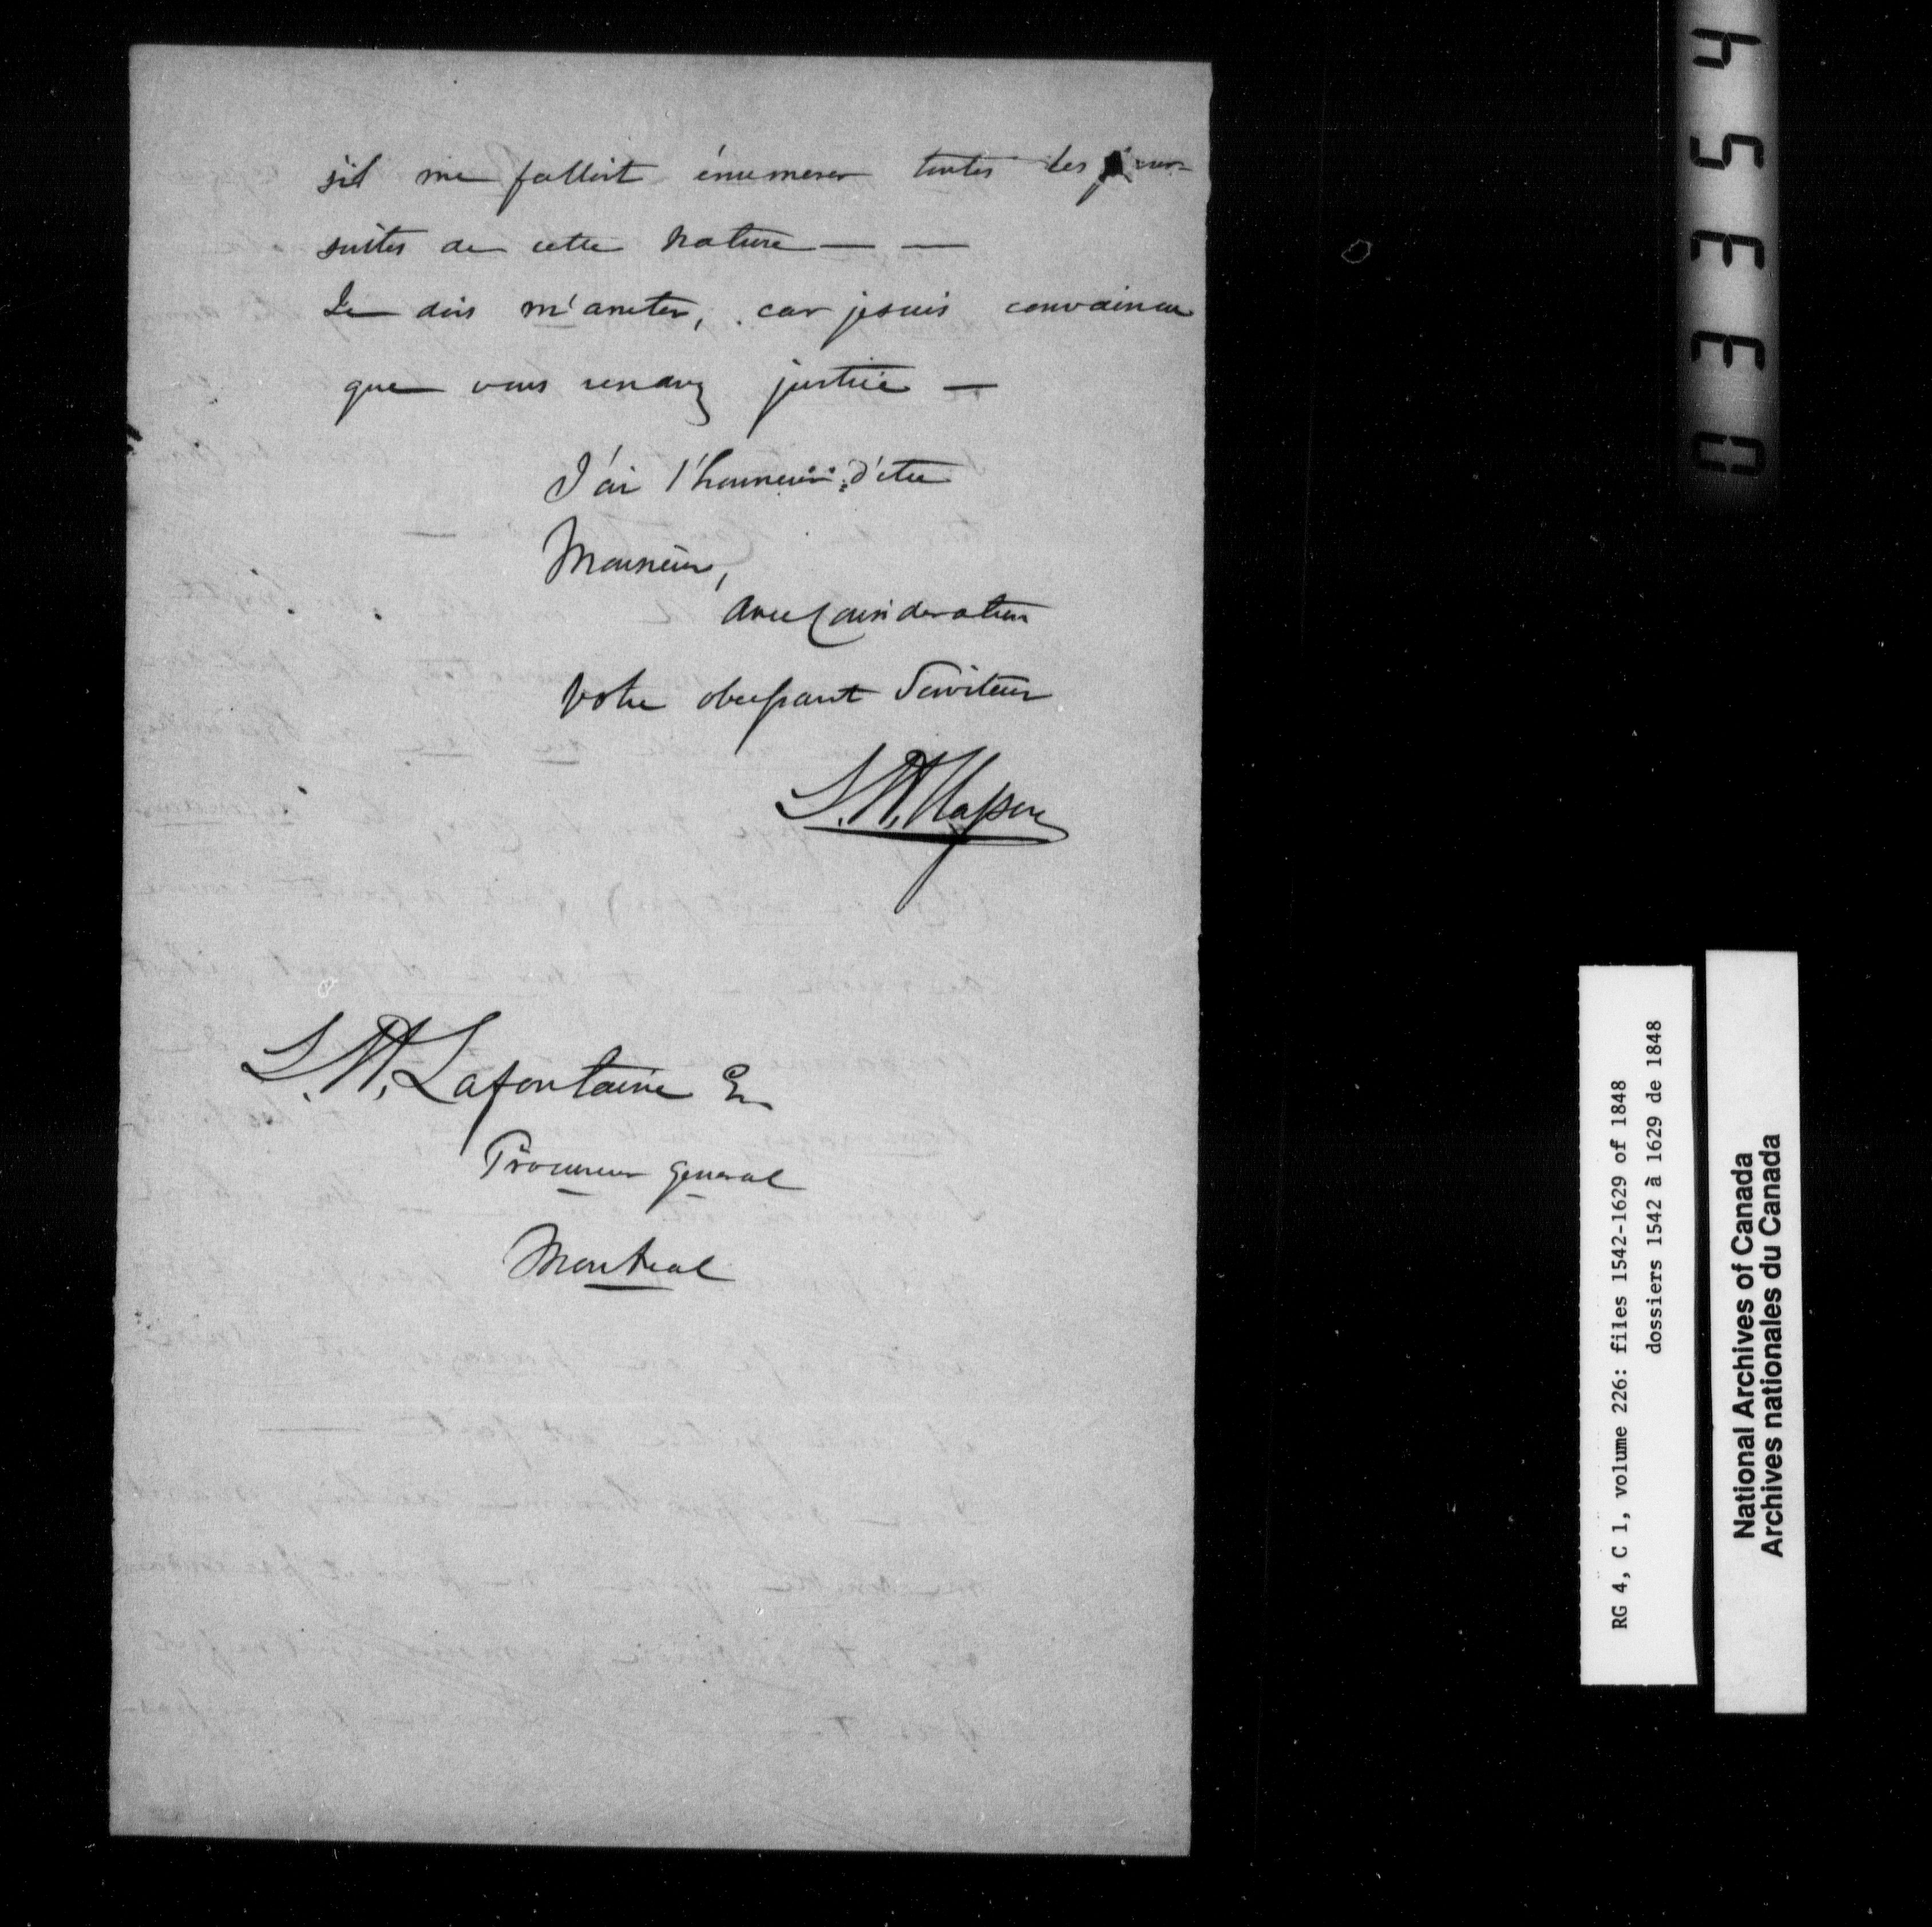 s'il me falloit énumerer toutes les pour-
suites de cette nature — —
Je dois m'arreter, car je suis convaincu
que vous rendrez justice —
J'ai l'honneur d'etre
Monsieur,
avec Consideration
Votre obeissant Serviteur
L. H. Masson
L. H. Lafontaine Er
Procureur General
Montreal
03354
RG 4, C 1, volume 226: files 1542-1629 of 1848
dossiers 1542 à 1629 de 1848
National Archives of Canada
Archives nationales du Canada